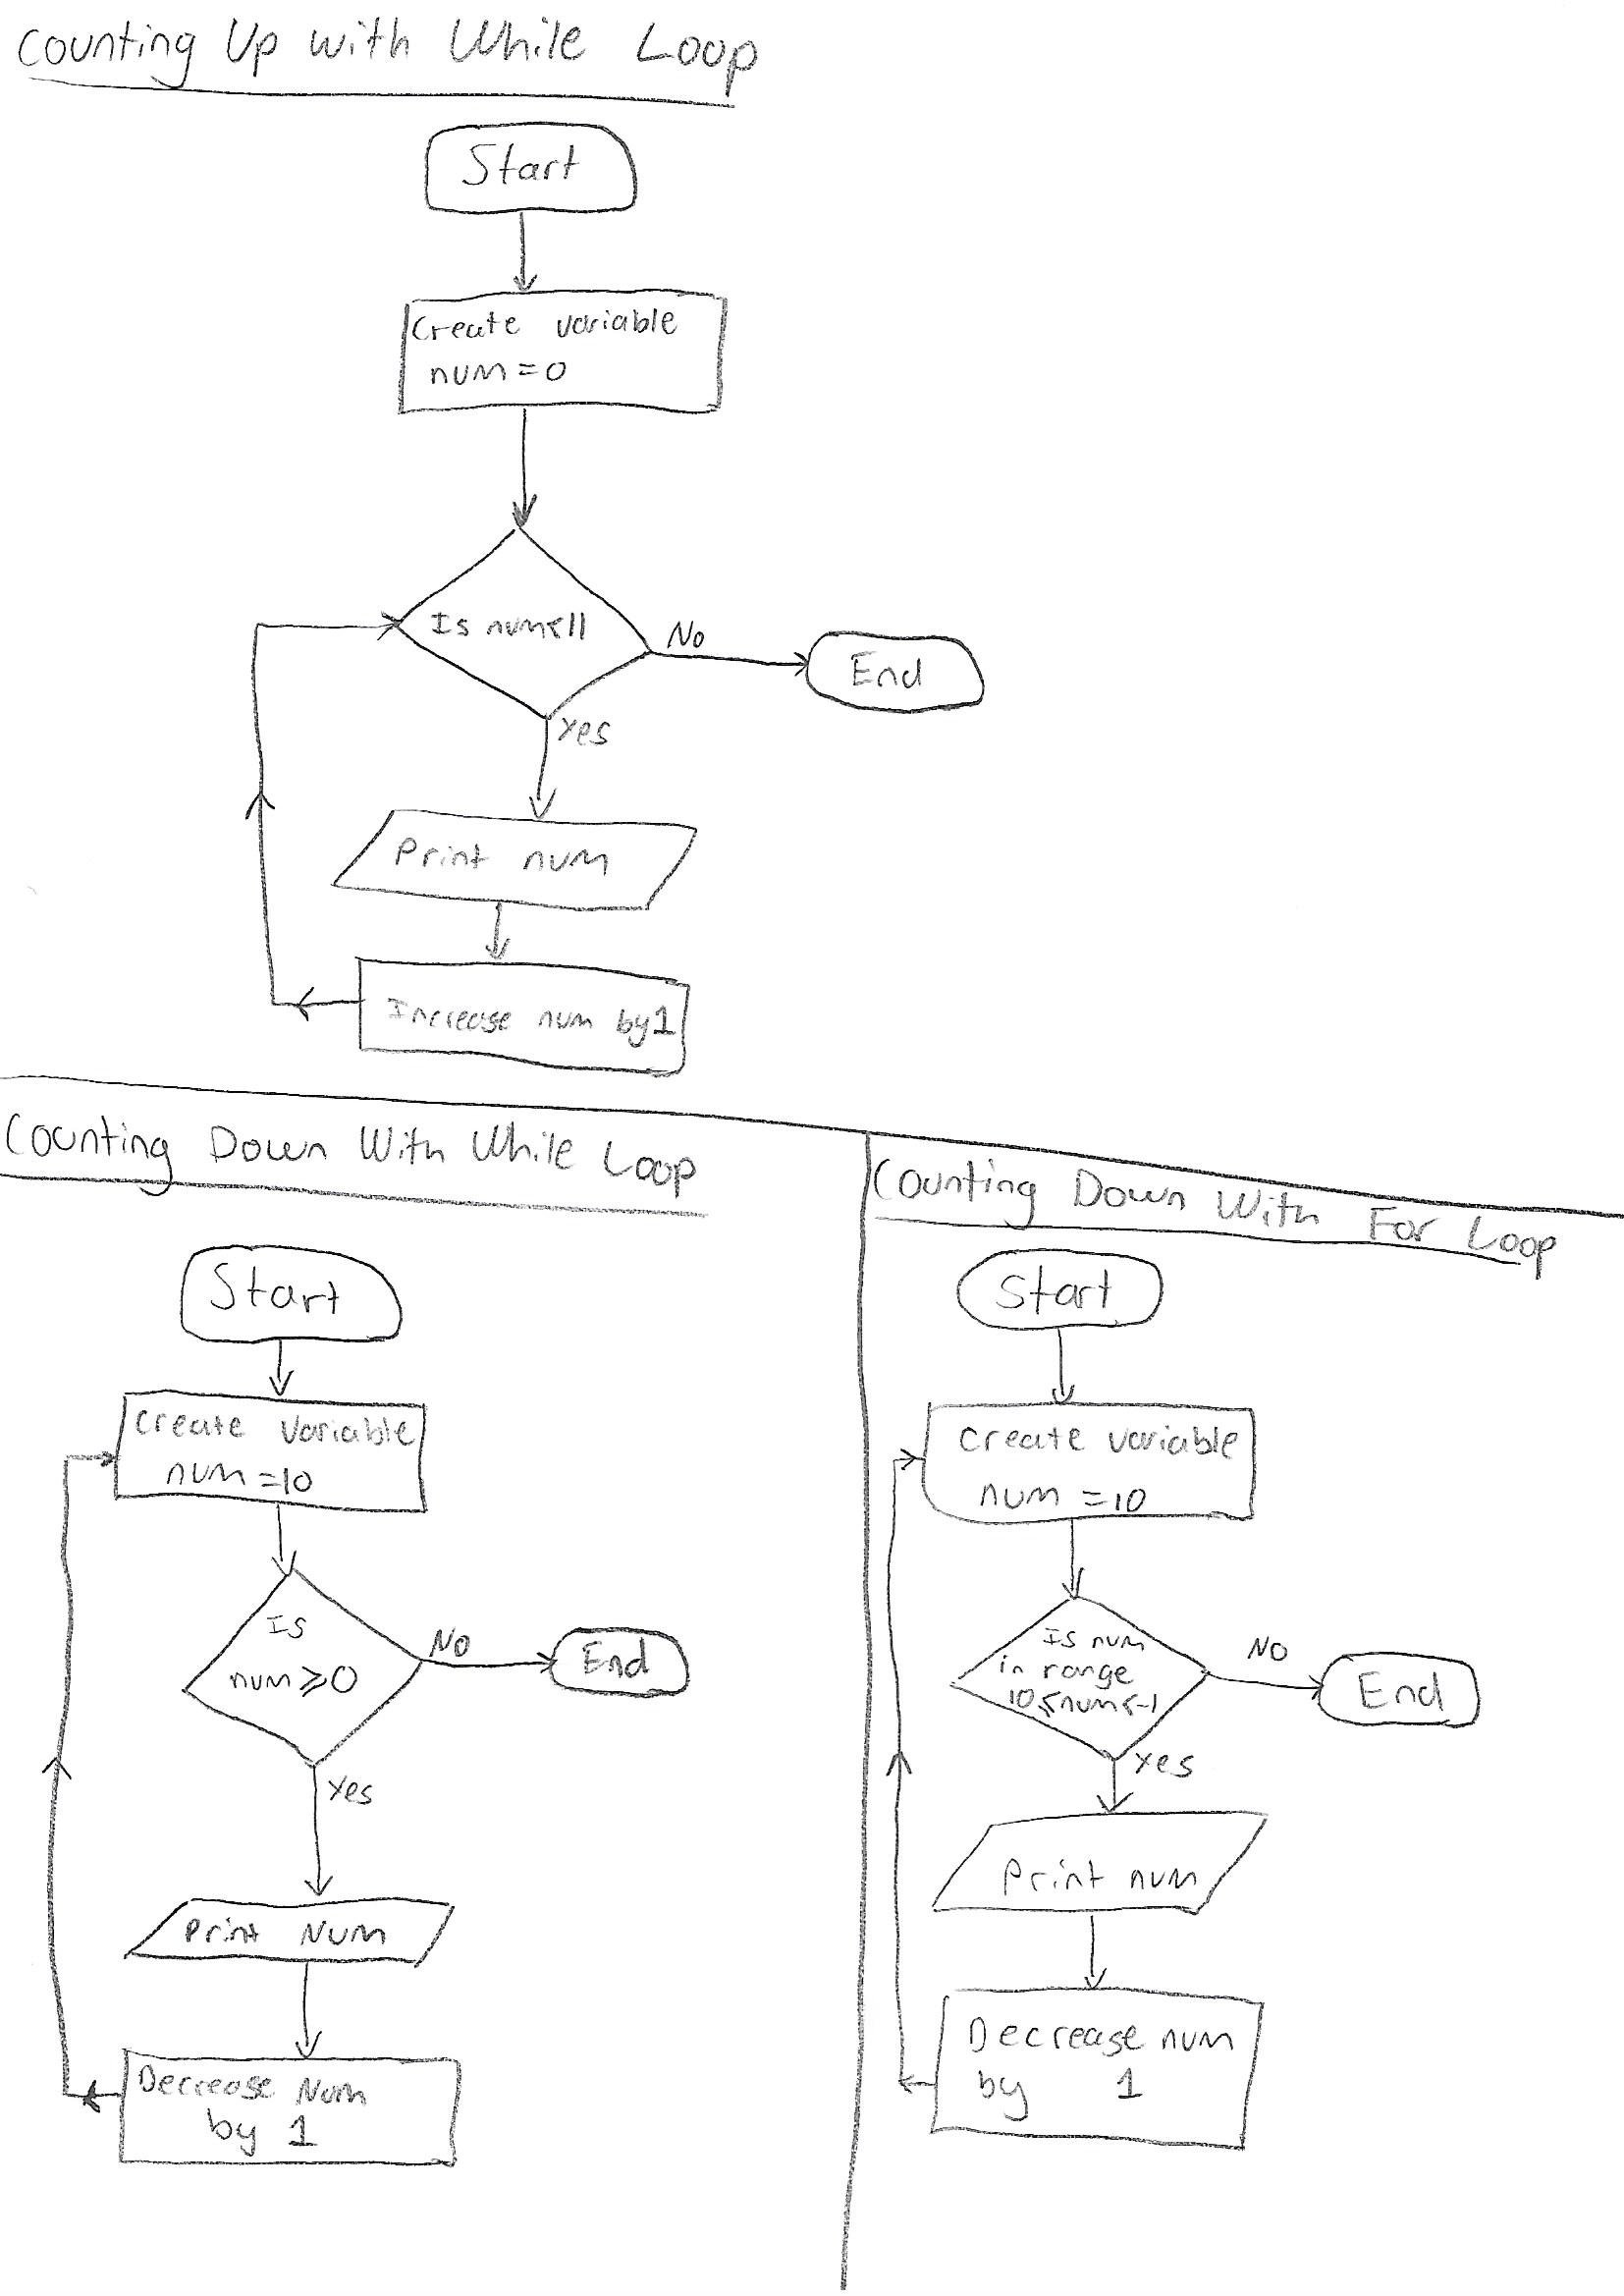 Counting Up with While Loop
Start
Create variable
num=0
Is num<11
No
End
Yes
Print num
Increase num by 1
Counting Down With While Loop
Start
Create Variable
num=10
Is
num≥0
No
End
Yes
Print Num
Decrease Num
by 1
Counting Down With For Loop
Start
Create variable
num=10
Is num
in range
10≤num<-1
No
End
Yes
Print num
Decrease num
by 1